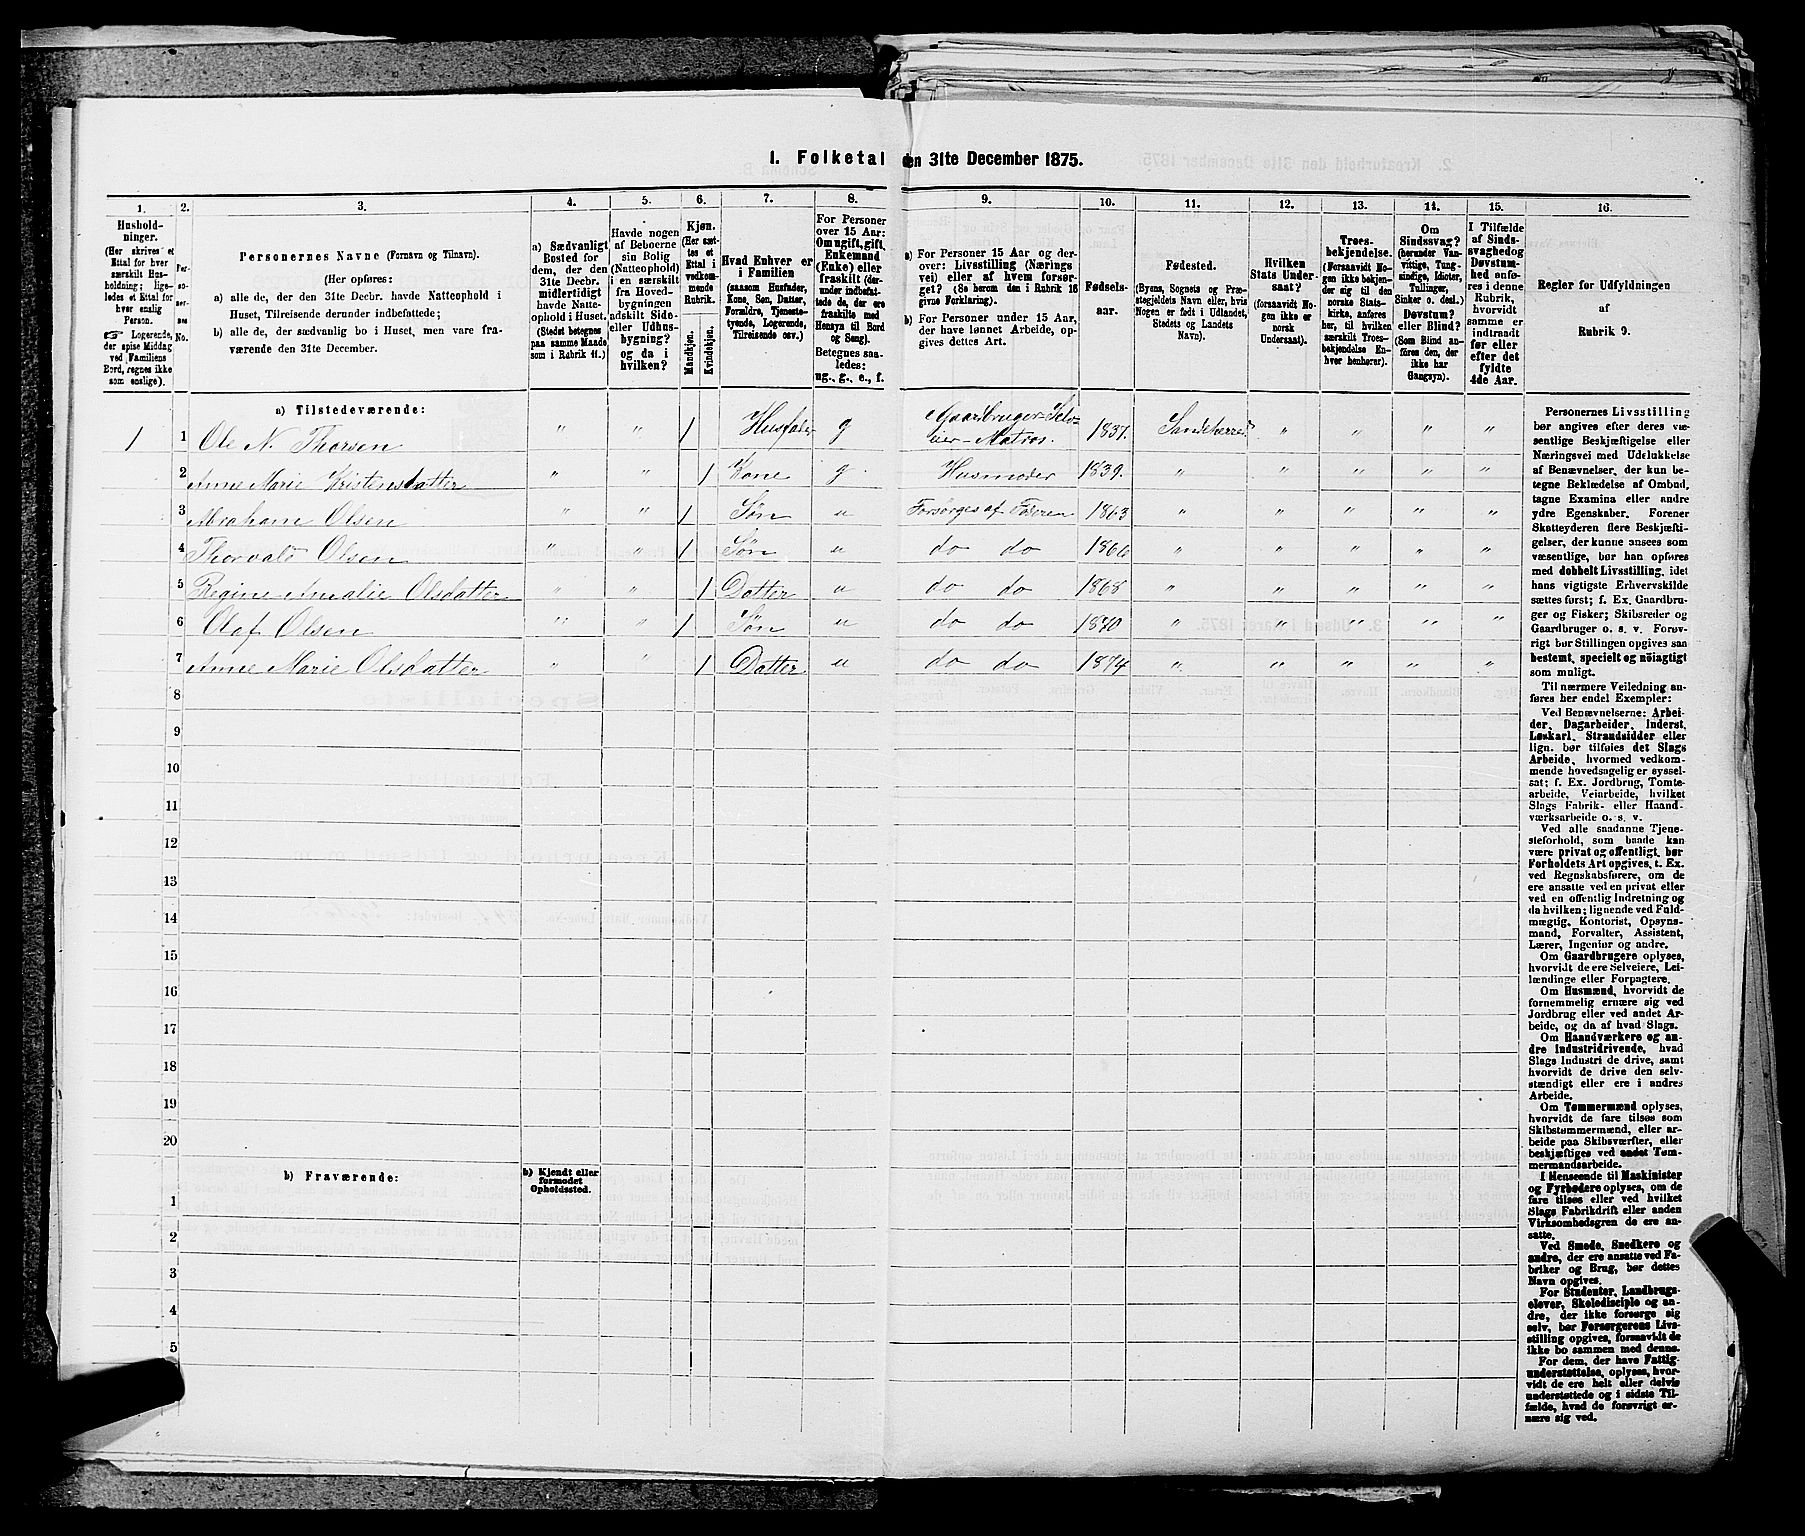 1. Folketal den 31te December 1875.
1.
2.
3.
4.
5.
6.
7.
8.
9.
10.
11.
12.
13.
14.
15.
16.
Hushold-
ninger.
(Her skrives et
Ettal for hver
særskilt Hus-
holdning; lige-
ledes et Ettal for
hver enslig
Person.
☞ Logerende,
der spise Middag
ved Familiens
Bord, regnes ikke
som enslige).
Per-
so-
ner-
nes
No.
Personernes Navne (Fornavn og Tilnavn).
(Her opføres:
a) alle de, der den 31te Decbr. havde Natteophold i
Huset, Tilreisende derunder indbefattede;
b) alle de, der sædvanlig bo i Huset, men vare fra-
værende den 31te December.
a) Sædvanligt
Bosted for
dem, der den
31te Decbr.
midlertidigt
havde Natte-
ophold i Huset.
(Stedet betegnes
paa samme Maade,
som i Rubrik 11.)
Havde nogen
af Beboerne
sin Bolig
(Natteophold)
i en særskilt
fra Hoved-
bygningen
adskilt Side-
eller Udhus-
bygning?
og da i
hvilken?
Kjøn.
(Her sæt-
tes et
Ettal i
vedkom-
mende
Rubrik.
Mandkjøn.
Kvindekjøn.
Hvad Enhver er
i Familien
(saasom Husfader,
Kone, Søn, Datter,
Forældre, Tjeneste-
tyende, Logerende,
Tilreisende osv.)
For Personer
over 15 Aar:
Om ugift, gift,
Enkemand
(Enke) eller
fraskilt (der-
under indbefat-
tede de, der ere
fraskilte med
Hensyn til Bord
og Seng).
Betegnes saa-
ledes:
ug., g., e., f.
a) For Personer 15 Aar og der-
over: Livsstilling (Nærings
vei) eller af hvem forsør-
get? (Se herom den i Rubrik 16
givne Forklaring).
b) For Personer under 15 Aar,
der have lønnet Arbeide, op-
gives dettes Art.
Fødsels-
aar.
Fødested.
(Byens, Sognets og Præ-
stegjeldets Navn eller, hvis
Nogen er født i Udlandet,
Stedets og Landets
Navn).
Hvilken
Stats Under-
saat?
(forsaavidt No-
gen ikke er
norsk
Undersaat).
Troes-
bekjendelse.
(Forsaavidt No-
gen ikke bekjen-
der sig til den
norske Stats-
kirke, anføres
her, til hvilken
særskilt Troes-
bekjendelse En-
hver henhører).
Om
Sindssvag?
(herunder Van-
vittige, Tung-
sindige, Idioter,
Tullinger,
Sinker o. desl.)
Døvstum?
eller Blind?
(Som Blind an-
føres den, der
ikke har
Gangsyn).
I Tilfælde
af Sinds-
svaghed og
Døvstum-
hed anfø-
res i denne
Rubrik,
hvorvidt
samme er
indtraadt
før eller
efter det
fyldte
4de Aar.
Regler for Udfyldningen
af
Rubrik 9.
a) Tilstedeværende:
1 1 Ole N. Thorsen " " 1 Husfader g Gaardbruger-Selv-
eier-Matros. 1837. Sandeherred. " " " "
2 Anne Marie Kristensdatter " " 1 Kone g Husmoder 1839. " " " " "
3 Abraham Olsen " " 1 Søn u Forsørges af Faderen 1863 " " " " "
4 Thorvald Olsen " " 1 Søn u do do 1866 " " " " "
5 Regine Amalie Olsdatter " " 1 Datter u do do 1868 " " " " "
6 Olaf Olsen " " 1 Søn u do do 1870 " " " " "
7 Anne Marie Olsdatter " " 1 Datter u do do 1874 " " " " "
8
9
10
11
12
13
14
15
16
17
18
19
20
b) Fraværende:
b) Kjendt eller
formodet
Opholdssted.
1
2
3
4
5
Personernes Livsstilling
bør angives efter deres væ-
sentlige Beskjæftigelse eller
Næringsvei med Udelukkelse
af Benævnelser, der kun be-
tegne Beklædelse af Ombud,
tagne Examina eller andre
ydre Egenskaber. Forener
Skatteyderen flere Beskjæfti-
gelser, der kunne ansees som
væsentlige, bør han opføres
med dobbelt Livsstilling, idet
hans vigtigste Erhvervskilde
sættes først; f. Ex. Gaardbru-
ger og Fisker; Skibsreder og
Gaardbruger o. s. v. Forøv-
rigt bør Stillingen opgives saa
bestemt, specielt og nøiagtigt
som muligt.
Til nærmere Veiledning an-
føres her endel Exempler:
Ved Benævnelserne: Arbei-
der, Dagarbeider, Inderst,
Løskarl, Strandsidder eller
lign. bør tilføies det Slags
Arbeide, hvormed vedkom-
mende hovedsagelig er syssel-
sat; f. Ex. Jordbrug, Tomte-
arbeide, Veiarbeide, hvilket
Slags Fabrik- eller Haand-
værksarbeide o. s. v.
Ved alle saadanne Tjene-
steforhold, som baade kan
være privat og offentligt, bør
Forholdets Art opgives, t. Ex.
ved Regnskabsførere, om de
ere ansatte ved en privat eller
ved en offentlig Indretning og
da hvilken; lignende ved Fuld-
mægtig, Kontorist, Opsyns-
mand, Forvalter, Assistent,
Lærer, Ingeniør og andre.
Om Gaardbrugere oplyses,
hvorvidt de ere Selveiere, Lei-
lændinge eller Forpagtere.
Om Husmænd, hvorvidt de
fornemmelig ernære sig ved
Jordbrug eller ved andet Ar-
beide, og da af hvad Slags.
Om Haandværkere og an-
dre Industridrivende, hvad
Slags Industri de drive, samt
hvorvidt de drive den selv-
stændigt eller ere i andres
Arbeide.
Om Tømmermænd oplyses,
hvorvidt de fare tilsøs som
Skibstømmermænd, eller ar-
beide paa Skibsværfter, eller
beskjæftiges ved andet Tøm-
mermandsarbeide.
I Henseende til Maskinister
og Fyrbødere oplyses, om de
fare tilsøs eller ved hvilket
Slags Fabrikdrift eller anden
Virksomhedsgren de ere an-
satte.
Ved Smede, Snedkere og
andre, der ere ansatte ved Fa-
briker og Brug, bør dettes
Navn opgives.
For Studenter, Landbrugs-
elever, Skoledisciple og an-
dre, der ikke forsørge sig
selv, bør Forsørgerens Livs-
stilling opgives, forsaavidt de
ikke bo sammen med denne.
For dem, der have Fattig-
understøttelse, oplyses, hvor-
vidt de ere helt eller delvis
understøttede og i sidste Til-
fælde, hvad de forøvrigt er-
nære sig ved.